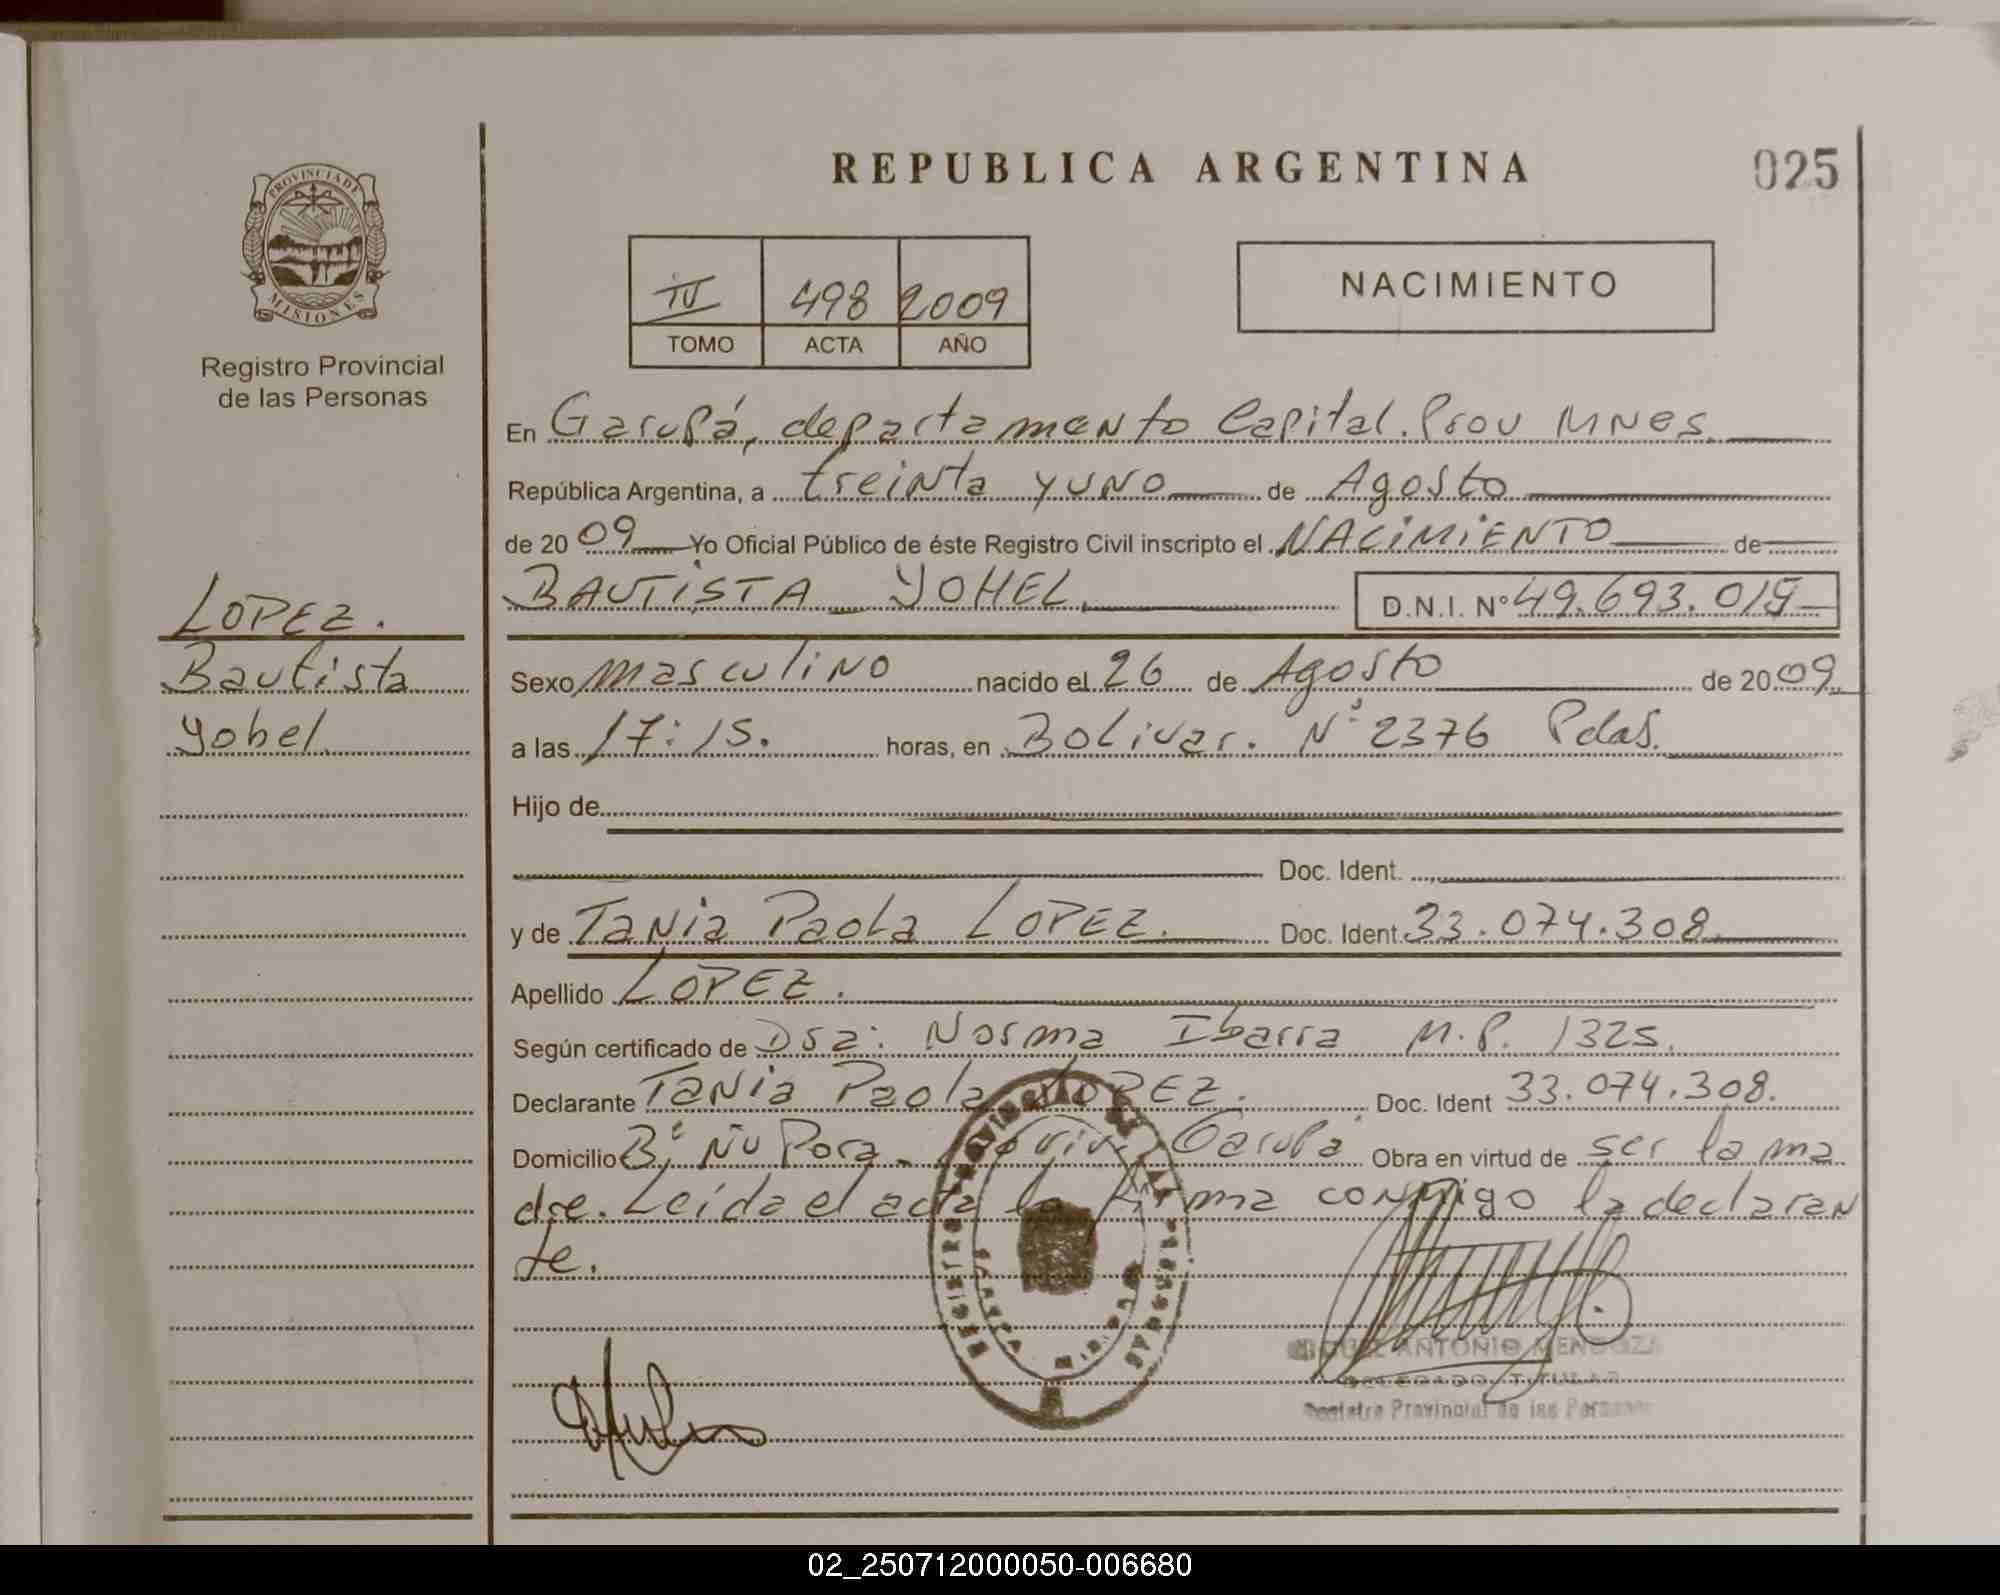 REPUBLICA ARGENTINA
025
PROVINCIA DE MISIONES
Registro Provincial
de las Personas
IV 498 2009
TOMO ACTA AÑO
NACIMIENTO
En Garupá, departamento Capital. Prov MNes.
República Argentina, a treinta y uno de Agosto
de 2009 Yo Oficial Público de éste Registro Civil inscripto el NACIMIENTO de
BAUTISTA YOHEL D.N.I. Nº 49.693.019
LOPEZ.
Bautista
Yohel
Sexo masculino nacido el 26 de Agosto de 2009
a las 17:15. horas, en Bolivar. Nº 2376 Pdas.
Hijo de
Doc. Ident.
y de Tania Paola LOPEZ. Doc. Ident. 33.074.308
Apellido LOPEZ.
Según certificado de Dra: Norma Ibarra M.P. 1325.
Declarante Tania Paola LOPEZ. Doc. Ident 33.074.308.
Domicilio Bº Ñu Pora Garupá Obra en virtud de ser la ma
dre. Leida el acta la firma conmigo la declaran
te.
REGISTRO PROVINCIAL DE LAS PERSONAS
GARUPA
MIGUEL ANTONIO MENDOZA
DELEGADO TITULAR
Registro Provincial de las Personas
02_250712000050-006680